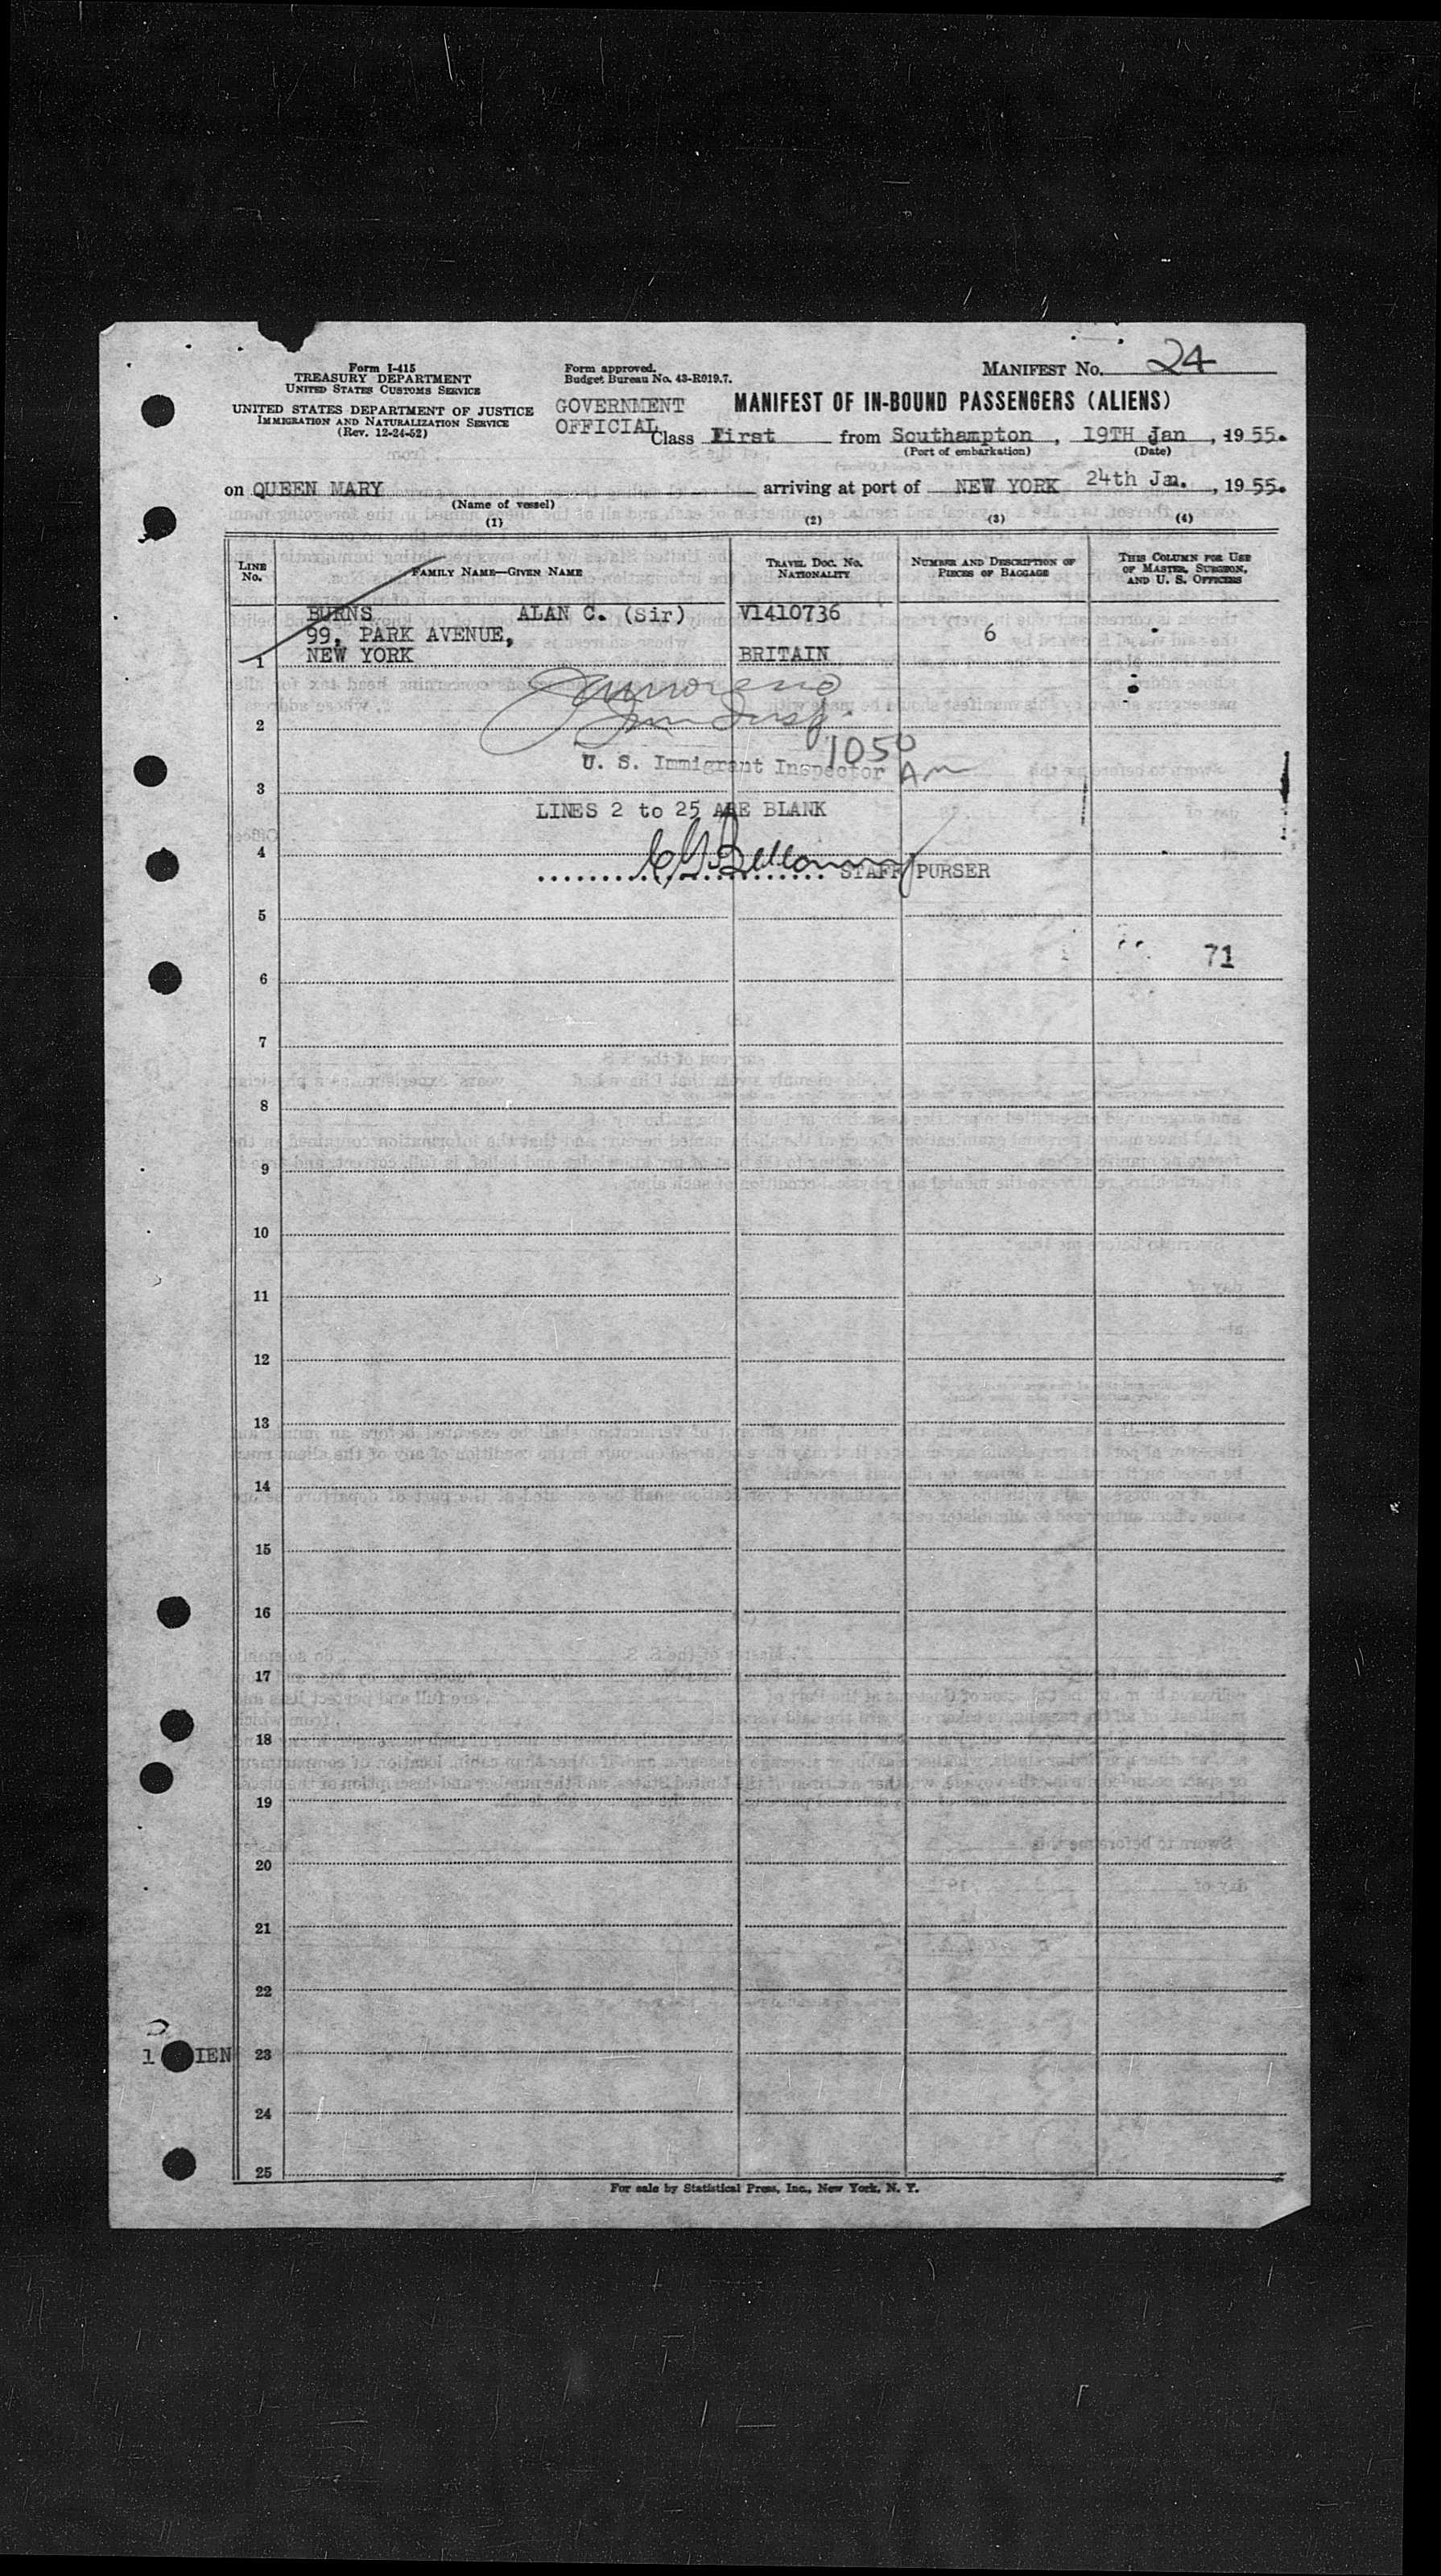 Form I-415
TREASURY DEPARTMENT
UNITED STATES CUSTOMS SERVICE
UNITED STATES DEPARTMENT OF JUSTICE
IMMIGRATION AND NATURALIZATION SERVICE
(Rev. 12-24-52)
Form approved.
Budget Bureau No. 43-R019.7.
MANIFEST No. 24
MANIFEST OF IN-BOUND PASSENGERS (ALIENS)
GOVERNMENT
OFFICIAL
Class First from Southampton, 19TH Jan, 1955.
(Port of embarkation) (Date)
on QUEEN MARY arriving at port of NEW YORK 24th Jan., 1955.
(Name of vessel)
(1) (2) (3) (4)
LINE No.
FAMILY NAME—GIVEN NAME
TRAVEL DOC. NO. NATIONALITY
NUMBER AND DESCRIPTION OF PIECES OF BAGGAGE
THIS COLUMN FOR USE OF MASTER, SURGEON, AND U. S. OFFICERS
BURNS ALAN C. (Sir) V1410736
99, PARK AVENUE, 6
1 NEW YORK BRITAIN
2
1050
U. S. Immigrant Inspector Am
3
LINES 2 to 25 ARE BLANK
4
STAFF PURSER
5
71
6
7
8
9
10
11
12
13
14
15
16
17
18
19
20
21
22
1 IEN 23
24
25
For sale by Statistical Press, Inc., New York, N. Y.